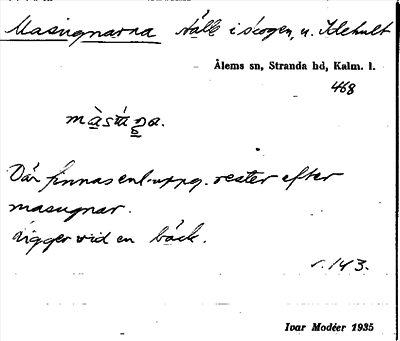 Masugnarna Ställe i skogen, u. Klehult
Ålems sn, Stranda hd, Kalm. l.
468
Där finnas enl. uppg. rester efter
masugnar.
Ligger vid en bäck.
r. 143.
Ivar Modéer 1935